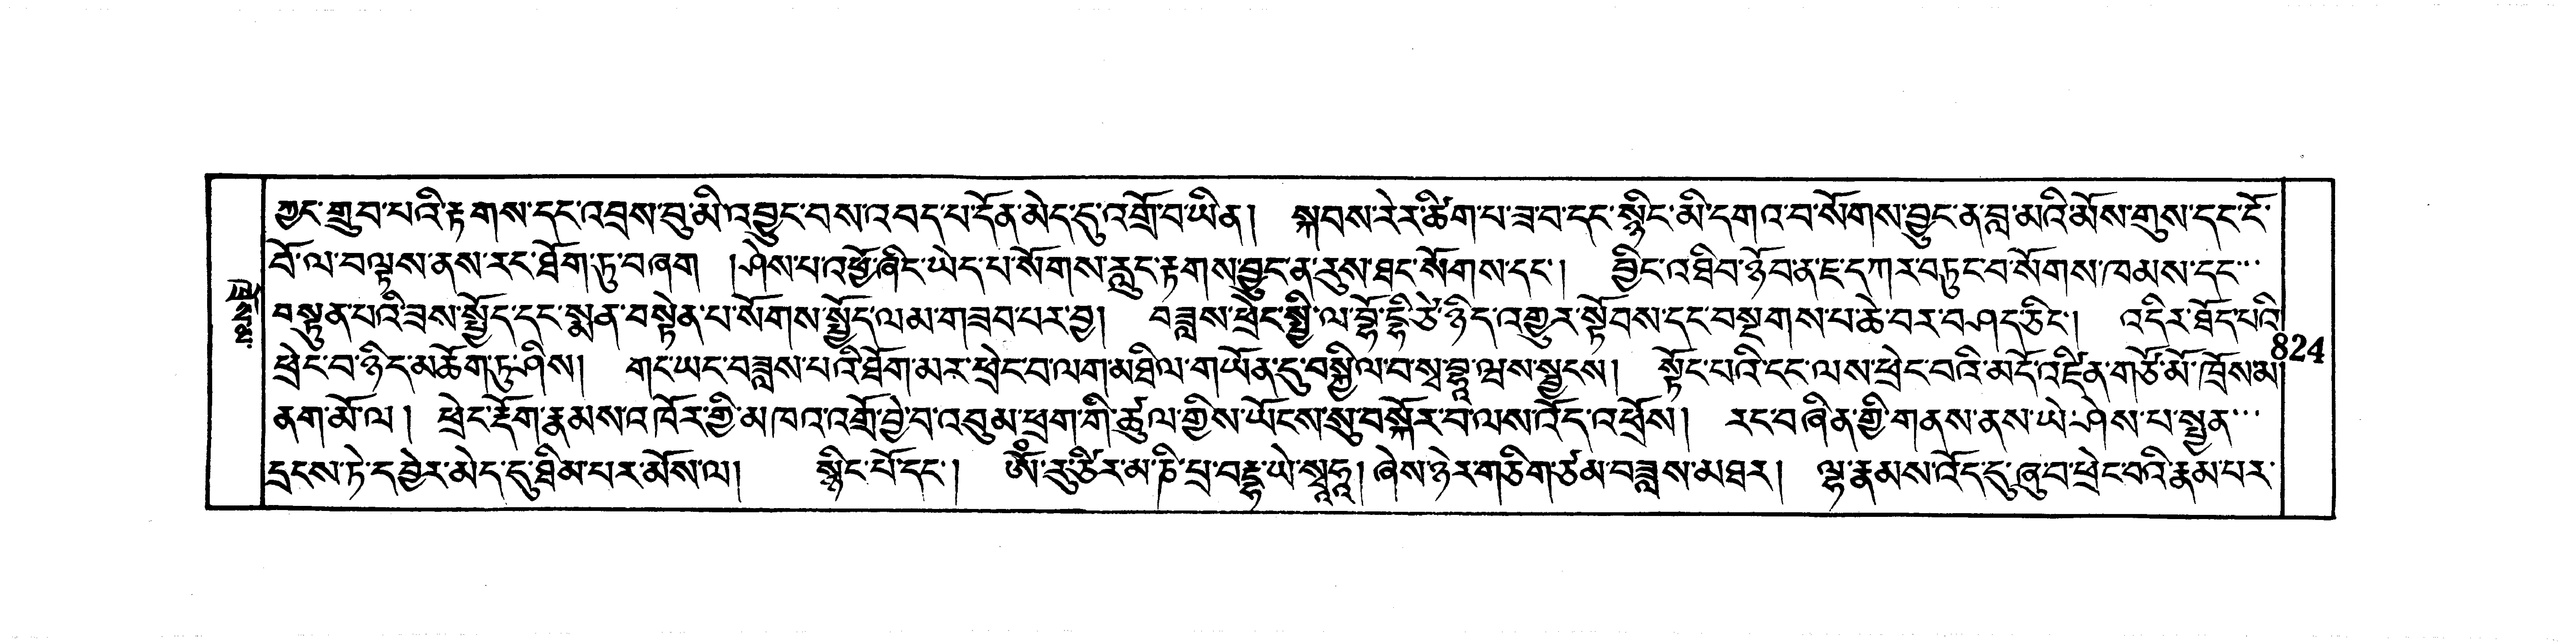 ཀྱང་གྲུབ་པའི་རྟགས་དང་འབྲས་བུ་མི་འབྱུང་བས་འབད་པ་དོན་མེད་དུ་འགྲོ་བ་ཡིན། སྐབས་རེར་ཚིག་པ་ཟ་བ་དང་སྙིང་མི་དགའ་བ་སོགས་བྱུང་ན་བླ་མའི་མོས་གུས་དང་ངོ་
བོ་ལ་བལྟས་ནས་རང་ཐོག་ཏུ་བཞག །ཤེས་པ་འཕྱོ་ཞིང་ཡེད་པ་སོགས་རླུང་རྟགས་བྱུང་ན་རུས་ཐང་སོགས་དང་། བྱིང་འཐིབ་ཉོབ་ན་ཇ་དཀར་བཏུང་བ་སོགས་ཁམས་དང་...
བསྟུན་པའི་ཟས་སྤྱོད་དང་སྨན་བསྟེན་པ་སོགས་སྤྱོད་ལམ་གཟབ་པར་བྱ། བཟླས་ཕྲེང་སྤྱི་ལ་བོ་དྷི་ཙེ་ཉིད་འགྱུར་སྟོབས་དང་བསྔགས་པ་ཆེ་བར་བཤད་ཅིང་། འདིར་ཐོད་པའི་
ཕྲེང་བ་ཉིད་མཆོག་ཏུ་ཤིས། གང་ཡང་བཟླས་པའི་ཐོག་མར་ཕྲེང་བ་ལག་མཐིལ་གཡོན་དུ་བསྐྱིལ་བ་སྭ་བྷཱ་ཝས་སྦྱངས། སྟོང་པའི་ངང་ལས་ཕྲེང་བའི་མདོ་འཛིན་གཙོ་མོ་ཁྲོས་མ་
ནག་མོ་ལ། ཕྲེང་རྡོག་རྣམས་འཁོར་གྱི་མཁའ་འགྲོ་བྱེ་བ་འབུམ་ཕྲག་གི་ཚུལ་གྱིས་ཡོངས་སུ་བསྐོར་བ་ལས་འོད་འཕྲོས། རང་བཞིན་གྱི་གནས་ནས་ཡེ་ཤེས་པ་སྤྱན་...
དྲངས་ཏེ་དབྱེར་མེད་དུ་ཐིམ་པར་མོས་ལ། སྙིང་པོ་དང་། ཨོཾ་རུ་ཙི་ར་མ་ཎི་པྲ་བརྡྷ་ཡེ་སྭཱཧཱ། ཞེས་ཉེར་གཅིག་ཙམ་བཟླས་མཐར། ལྷ་རྣམས་འོད་དུ་ཞུ་བ་ཕྲེང་བའི་རྣམ་པར་
824